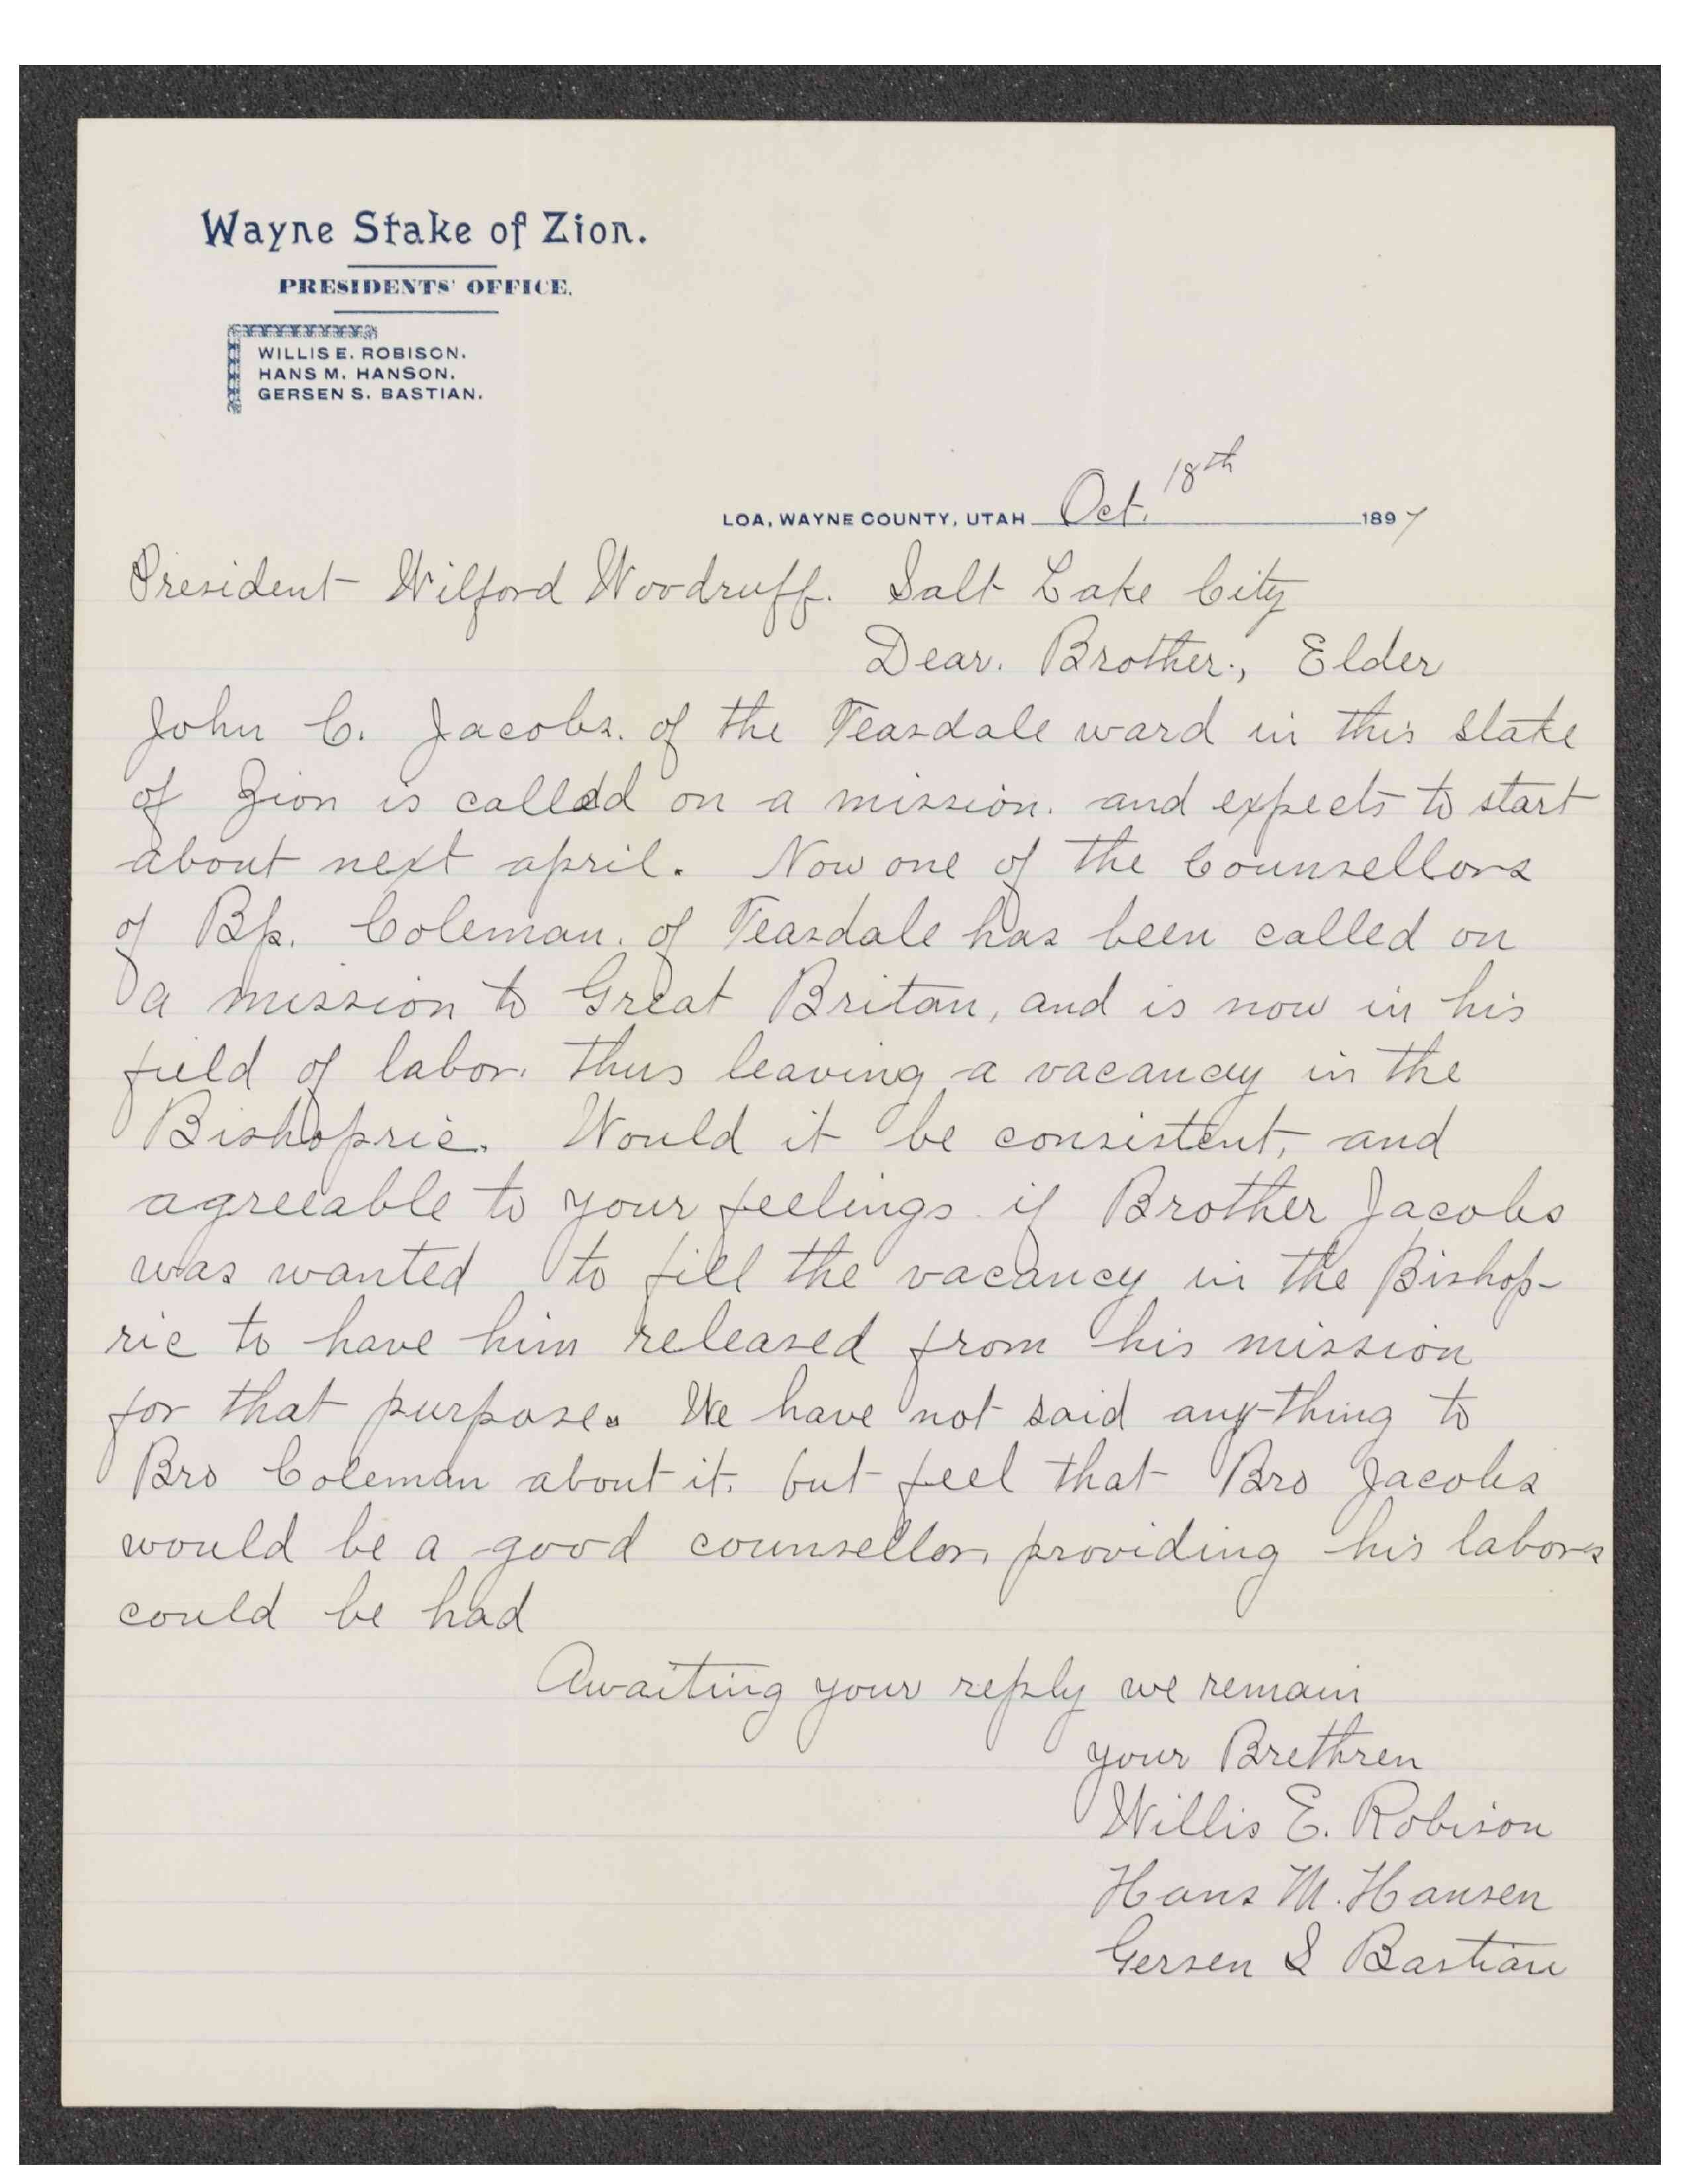 Wayne Stake of Zion.
PRESIDENTS' OFFICE.
WILLIS E. ROBISON.
HANS M. HANSON.
GERSEN S. BASTIAN.
LOA, WAYNE COUNTY, UTAH Oct. 18th 1897
President Wilford Woodruff. Salt Lake City
Dear. Brother., Elder
John C. Jacobs. of the Teasdale ward in this stake
of Zion is called on a mission. and expects to start
about next april. Now one of the Counsellors
of Bp. Coleman. of Teasdale has been called on
a mission to Great Britan, and is now in his
field of labor. thus leaving a vacancy in the
Bishopric. Would it be consistent, and
agreeable to your feelings if Brother Jacobs
was wanted to fill the vacancy in the Bishop-
ric to have him released from his mission
for that purpose. We have not said any-thing to
Bro Coleman about it. but feel that Bro Jacobs
would be a good counsellor, providing his labors
could be had
Awaiting your reply we remain
your Brethren
Willis E. Robison
Hans M. Hansen
Gersen S Bastian